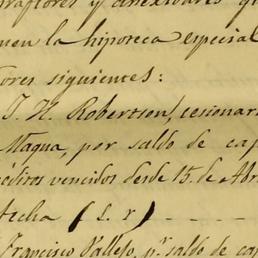 y
men la hipoteca especial
ores siguientes:
J. H. Robertson, cesionar
Magua, por saldo de cap
réditos vencidos desde 15. de Abr
fecha (S. r) - - - -
Francisco Vallejo, pr. saldo de ca